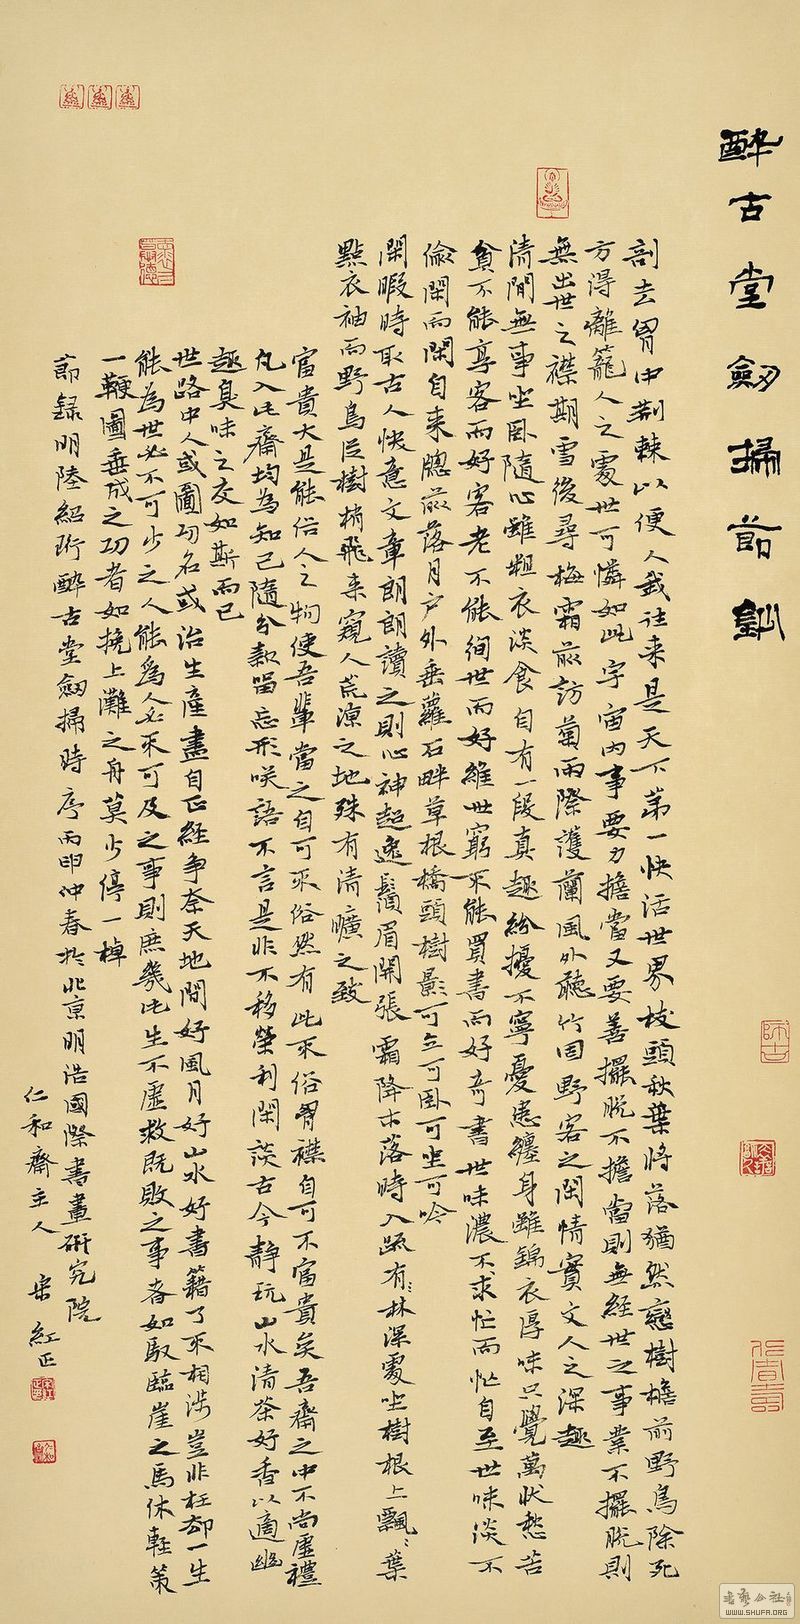 醉古堂劒掃節鈔
剖去胷中荆棘以便人我往来是天下第一快活世界枝頭秋葉将落猶然戀樹檐前野鳥除死
方得離籠人之處世可憐如此宇宙内事要力擔當又要善擺脱不擔當則無經世之事業不擺脱則
無出世之襟期雪後尋梅霜前訪菊雨際護蘭風外聽竹固野客之閑情實文人之深趣
清閒無事坐卧隨心雖粗衣淡食自有一段真趣紛擾不寧憂患纏身雖錦衣厚味只覺萬状愁苦
貧不能享客而好客老不能徇世而好維世窮不能買書而好奇書世味濃不求忙而忙自至世味淡不
偷閑而閑自来窻前落月户外垂蘿石畔草根橋頭樹影可立可卧可坐可吟
閑暇時取古人快意文章朗朗讀之則心神超逸鬚眉開張霜降木落時入疏林深處坐樹根上飄飄葉
點衣袖而野鳥從樹梢飛来窺人荒凉之地殊有清曠之致
富貴大是能俗人之物使吾輩當之自可不俗然有此不俗胷襟自可不富貴矣吾齋之中不尚虚禮
凡入此齋均為知己隨分款留忘形咲語不言是非不移榮利閑談古今静玩山水清茶好香以適幽
趣臭味之交如斯而已
世路中人或圖功名或治生産盡自正經争奈天地間好風月好山水好書籍了不相涉豈非枉却一生
能為世必不可少之人能爲人必不可及之事則庶幾此生不虚救既敗之事者如馭臨崖之馬休輕策
一鞭圖垂成之功者如挽上灘之舟莫少停一棹
節録明陸紹珩醉古堂劒掃時序丙申仲春於北京明浩國際書畫研究院
仁和齋主人 宋紅正
書藝公社
WWW.SHUFA.ORG